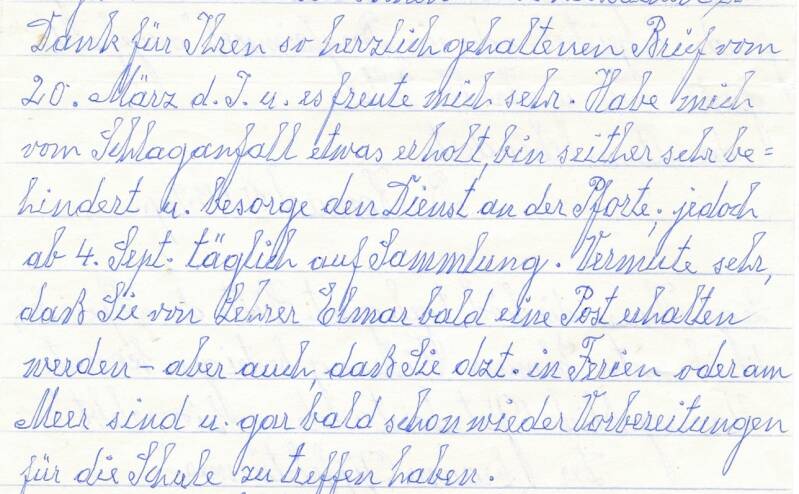 Dank für Ihren so herzlich gehaltenen Brief vom
20. März d. J. u. es freute mich sehr. Habe mich
vom Schlaganfall etwas erholt, bin seither sehr be=
hindert u. besorge den Dienst an der Pforte; jedoch
ab 4. Sept. täglich auf Sammlung. Vermute sehr,
daß Sie von Lehrer Elmar bald eine Post erhalten
werden - aber auch, daß Sie dzt. in Ferien oder am
Meer sind u. gar bald schon wieder Vorbereitungen
für die Schule zu treffen haben.